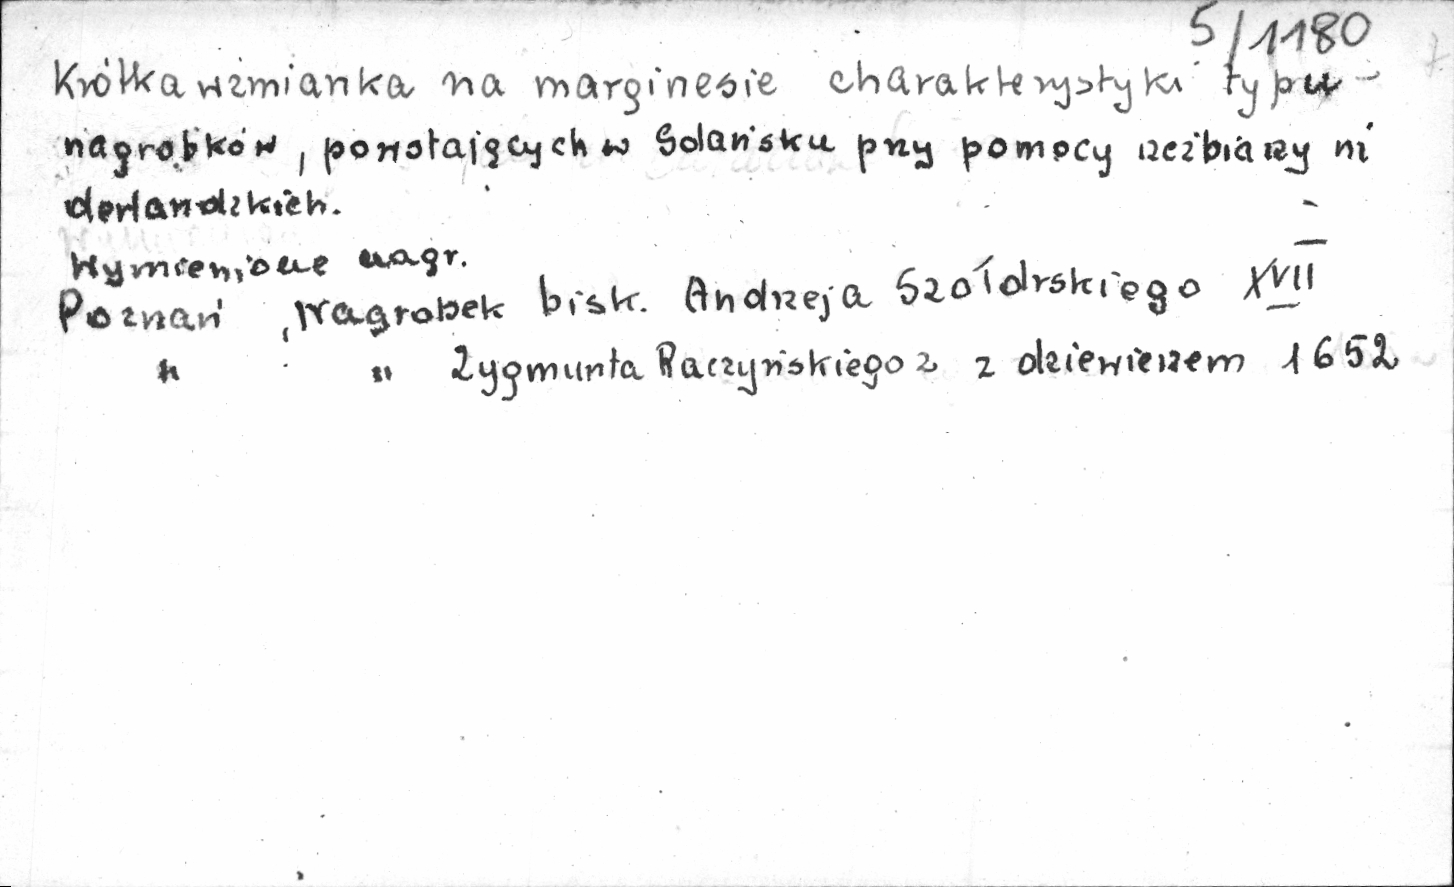 5/1180
Krótka wzmianka na marginesie charakterystyki typu -
nagrobków, powstających w Gdańsku przy pomocy rzeźbiarzy ni
derlandzkich.
Wymienione nagr.
Poznań , Nagrobek bisk. Andrzeja Szołdrskiego XVII
" " Zygmunta Raczyńskiego z z dziewierzem 1652